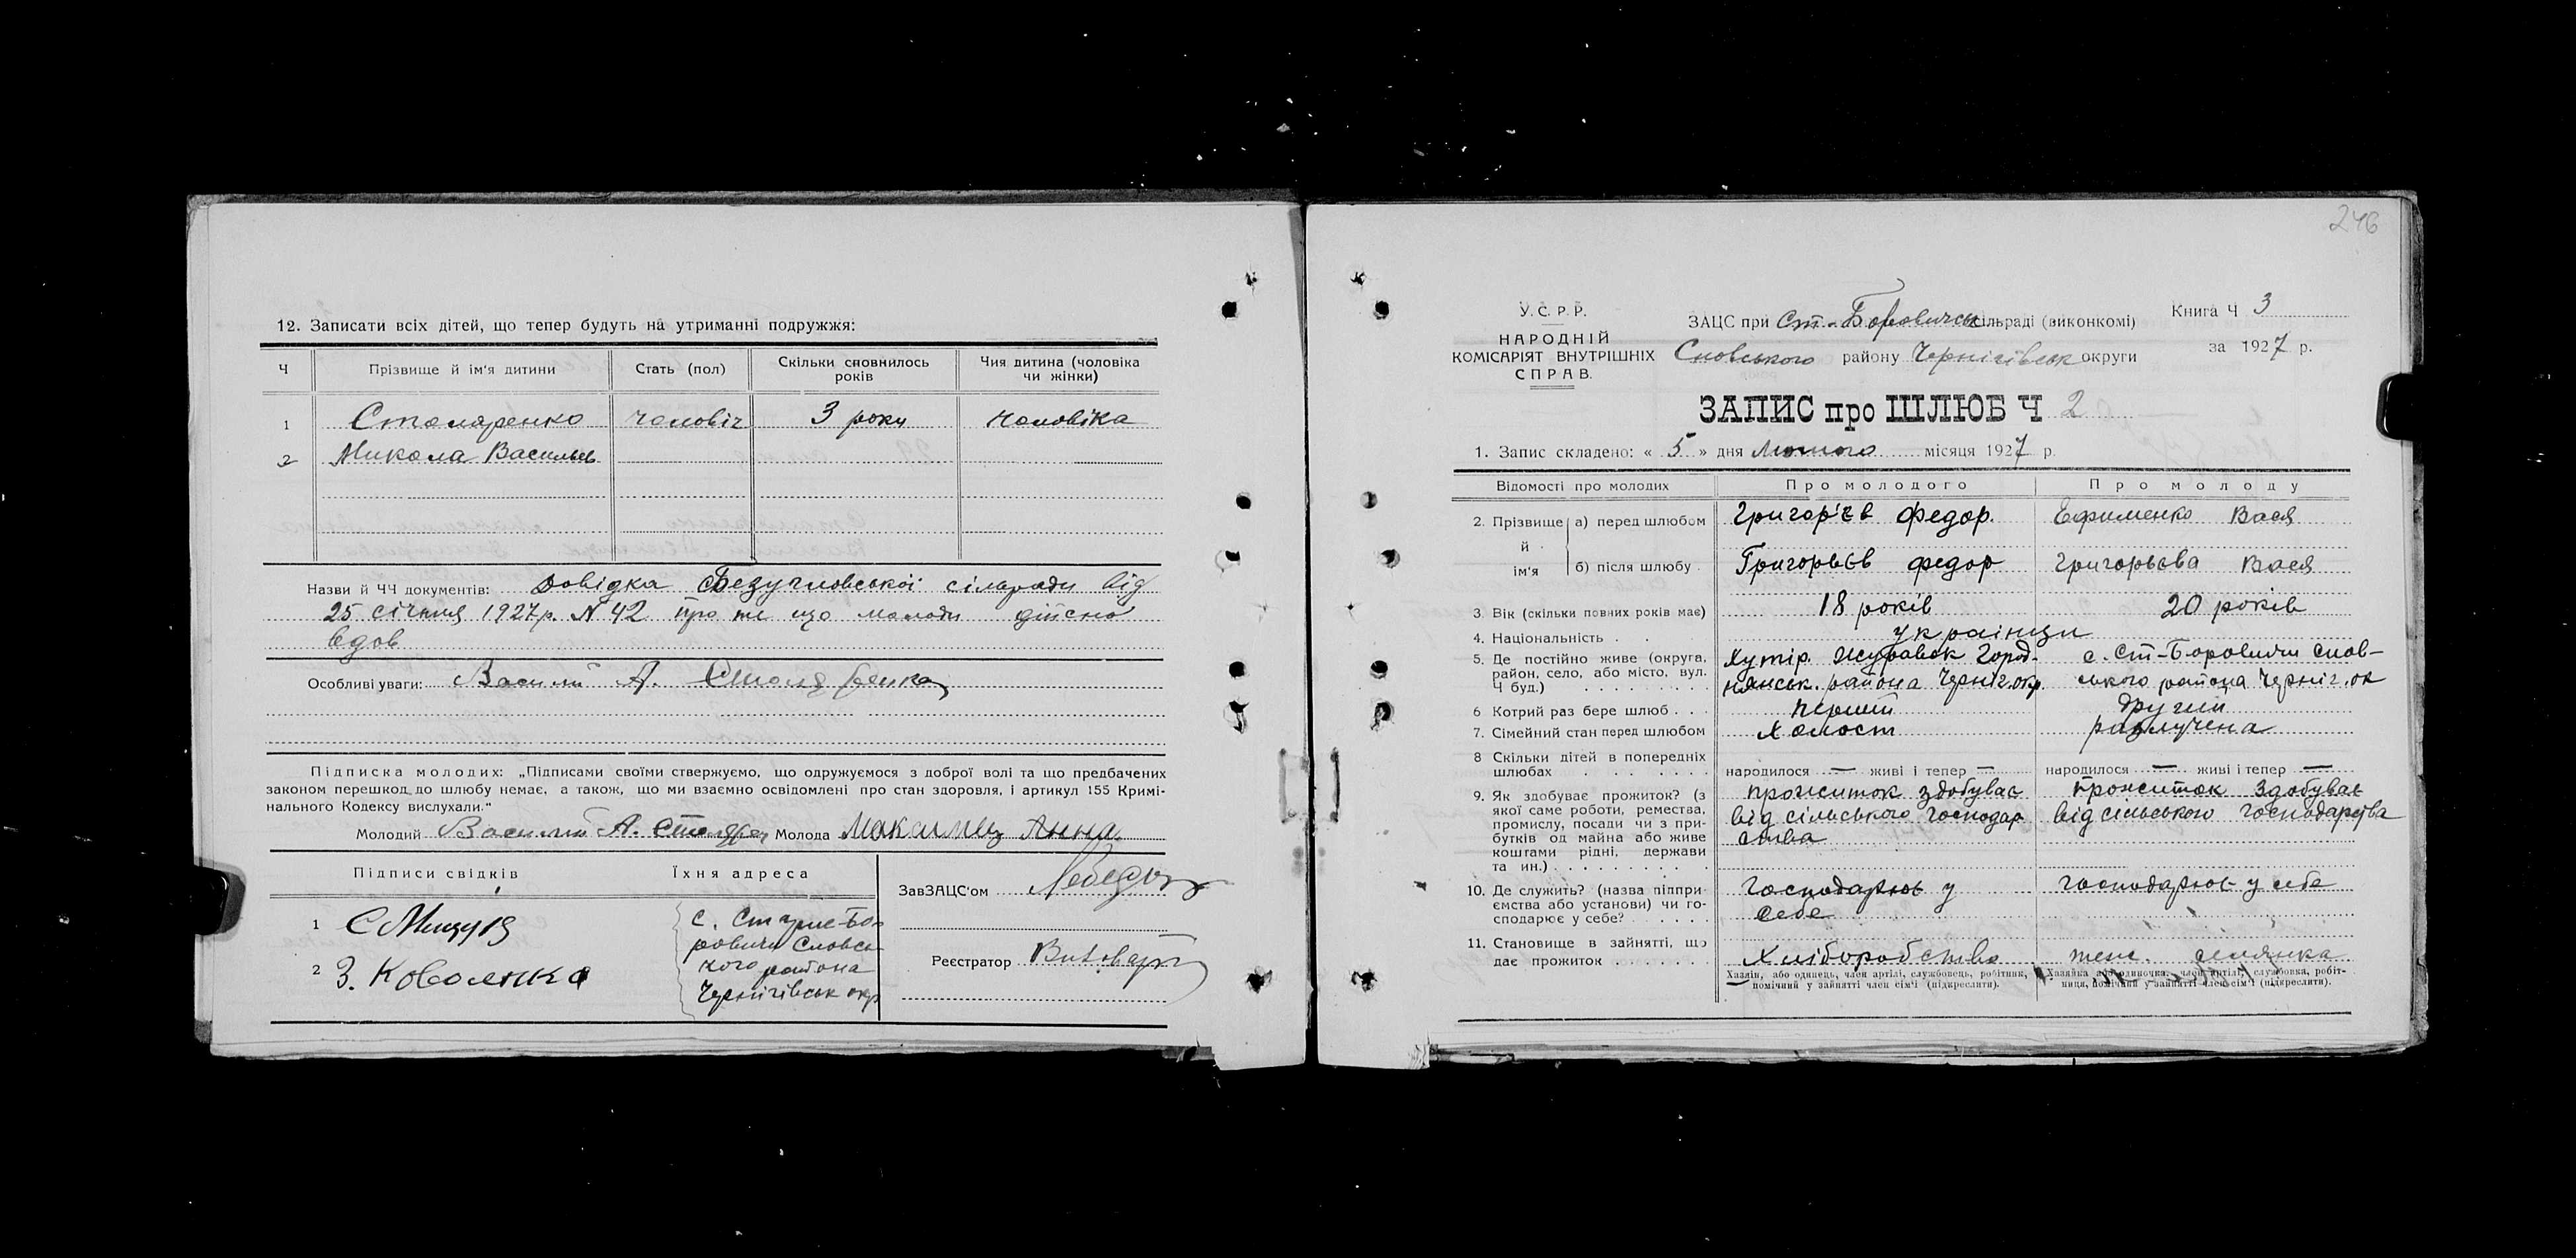 12. Записати всіх дітей, що тепер будуть на утриманні подружжя:
Ч Прізвище й ім'я дитини Стать (пол) Скільки сповнилось років Чия дитина (чоловіка чи жінки)
1 Столяренко чоловіч 3 роки чоловіка
2 Микола Васильев
Назви й ЧЧ документів: Довідка Безугловської сільради від
25 січня 1927р. N 42 про те що молоди дійсно
вдов
Особливі уваги: Василий А. Столяренко
Підписка молодих: „Підписами своїми стверджуємо, що одружуємося з доброї волі та що предбачених
законом перешкод до шлюбу немає, а також, що ми взаємно освідомлені про стан здоровля, і артикул 155 Кримі-
нального Кодексу вислухали."
Молодий Василий А. Столярен Молода Максимец Анна
Підписи свідків Їхня адреса
ЗавЗАЦС'ом
1 с. Старые-Бо-
ровичи Сновсь-
2 З. Коваленко кого района
Чернігівськ окр
Реєстратор
246
У.С.Р.Р.
НАРОДНІЙ
КОМІСАРІЯТ ВНУТРІШНІХ
СПРАВ.
ЗАЦС при Ст.-Боровичськ сільраді (виконкомі)
Сновського району Чернігівськ округи
Книга Ч 3
за 1927 р.
ЗАПИС про ШЛЮБ Ч 2
1. Запис складено: « 5 » дня Лютого місяця 1927 р.
Відомості про молодих Про молодого Про молоду
2. Прізвище й ім'я а) перед шлюбом Григор'єв Федор. Ефименко Вася
б) після шлюбу Григорьєв федор Григорьєва Вася
3. Вік (скільки повних років має) 18 років 20 років
4. Національність українци
5. Де постійно живе (округа, Хутір. Журавок Город- с. Ст-Боровичи Снов-
район, село, або місто, вул. нянськ. района Черніг.окр. ського района Черніг.ок
Ч буд.)
6 Котрий раз бере шлюб перший другий
7. Сімейний стан перед шлюбом Холост разлучена
8 Скільки дітей в попередніх
шлюбах народилося — живі і тепер — народилося — живі і тепер —
9. Як здобуває прожиток? (з прожиток здобуває прожиток здобуває
якої саме роботи, ремества, від сільського господар від сільського господарства
промислу, посади чи з при- ства
бутків од майна або живе
коштами рідні, держави
та ин.)
10. Де служить? (назва підпри- господарює у господарює у себе
ємства або установи) чи го- себе
сподарює у себе?
11. Становище в зайнятті, що
дає прожиток Хліборобство селянка
Хазяїн, або одинець, член артілі, службовець, робітник,
помічний у зайнятті член сім'ї (підкреслити).
Хазяйка або одиночка, член артілі, службовка, робіт-
ниця, помічний у зайнятті член сім'ї (підкреслити).